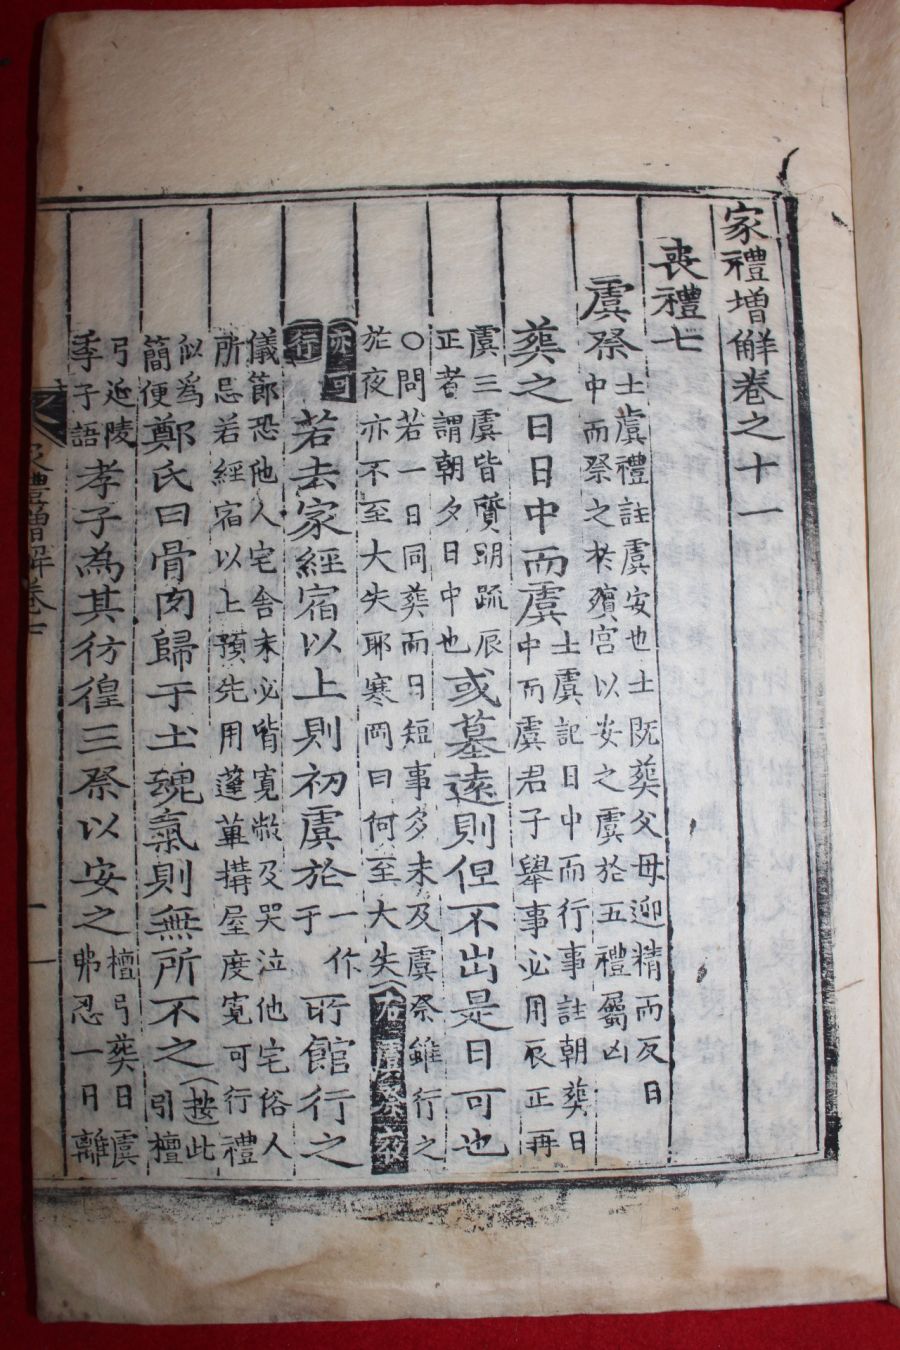 家禮增解卷之十一
喪禮七
虞祭 士虞禮註虞安也士既葬父母迎精而反日中而祭之於殯宮以安之虞於五禮屬凶
葬之日日中而虞 士虞記日中而行事註朝葬日中而虞君子舉事必用辰正再
虞三虞皆質明疏辰正者謂朝夕日中也 或墓遠則但不出是日可也
○問若一日同葬而日短事多未及虞祭雖行之於夜亦不至大失耶寒岡曰何至大失
亦可行 若去家經宿以上則初虞於 一作于 所館行之
儀節恐他人宅舍未必皆寬敞及哭泣他宅俗人所忌若經宿以上預先用蓬葦搆屋度寬可行禮
似爲簡便 鄭氏曰骨肉歸于土魂氣則無所不之 按此引檀
弓延陵季子語 孝子為其彷徨三祭以安之 檀弓葬日虞弗忍一日離
禮增解卷十一
一